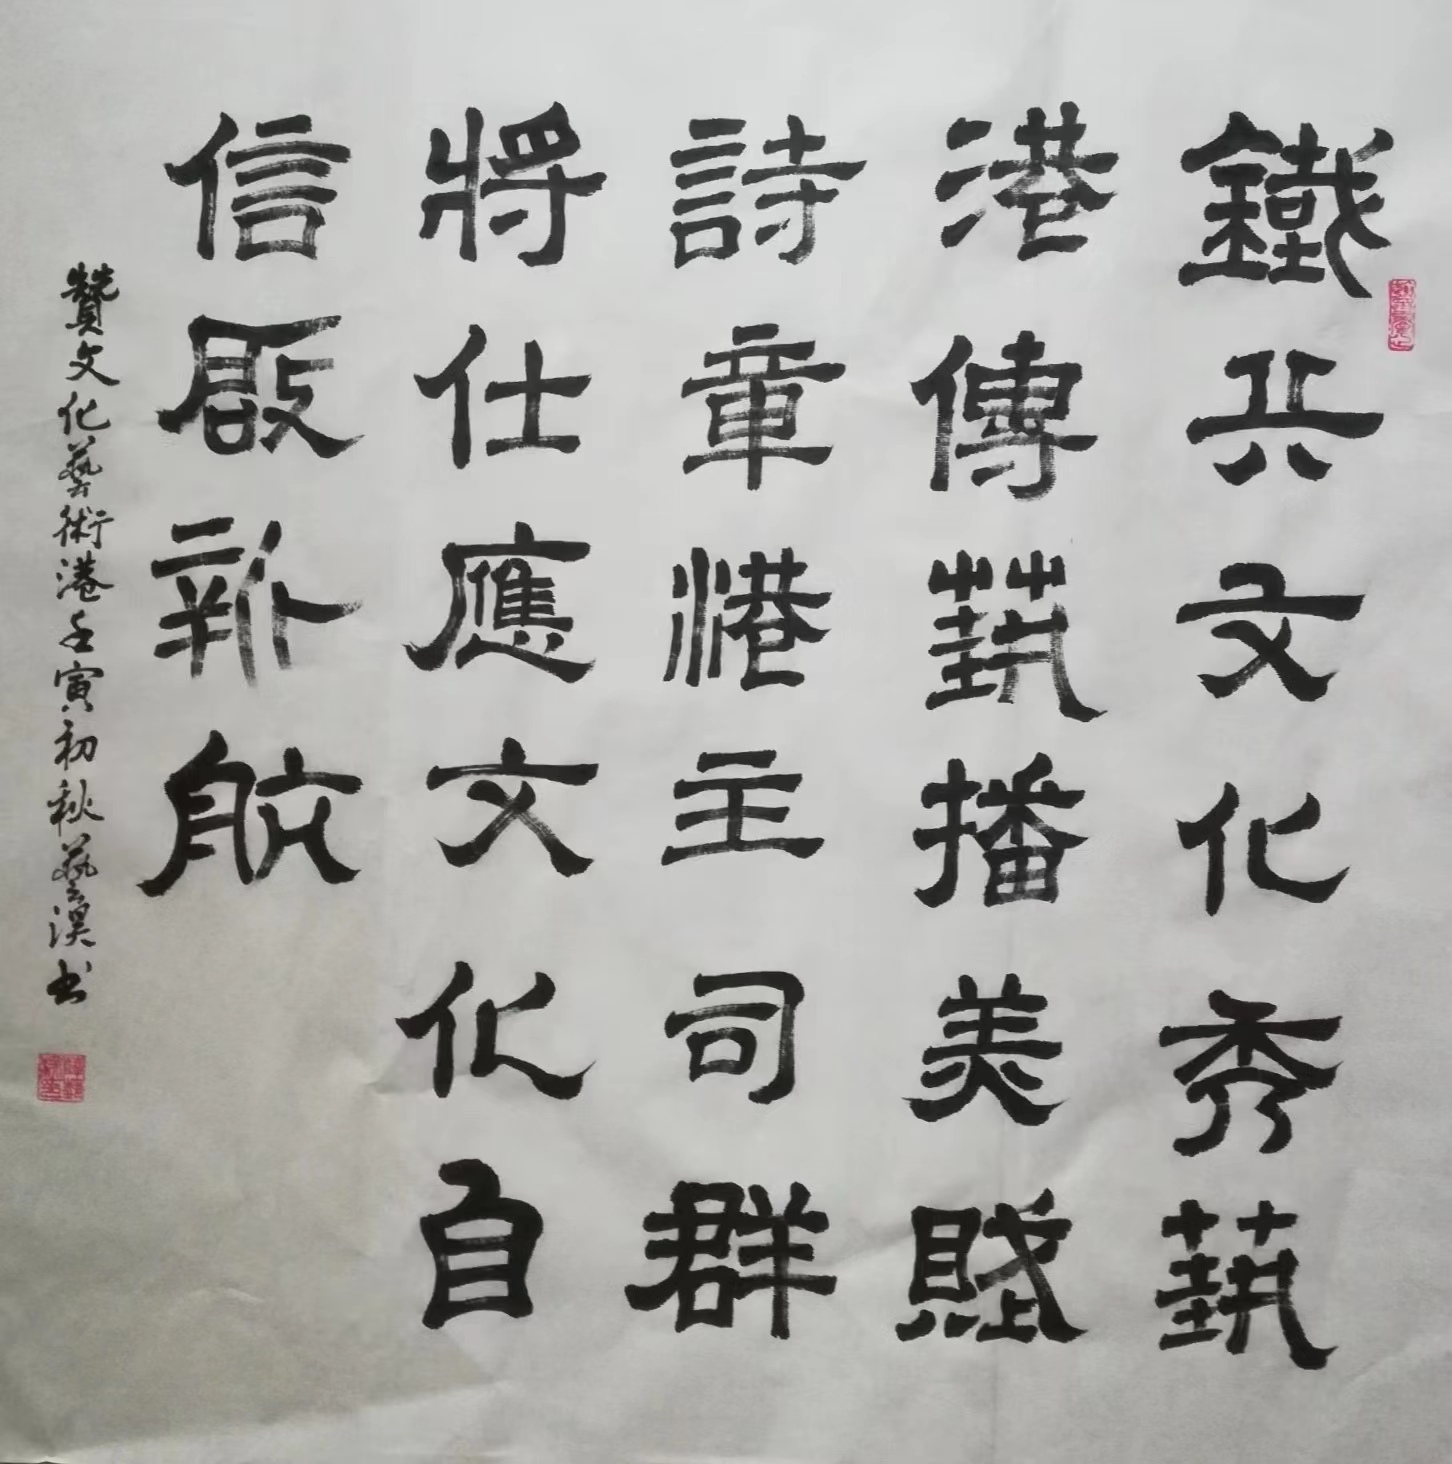 鐵兵文化秀藝
港傳藝播美賦
詩章港主司群
將仕應文化自
信啟新航
贊文化藝術港壬寅初秋藝淏书